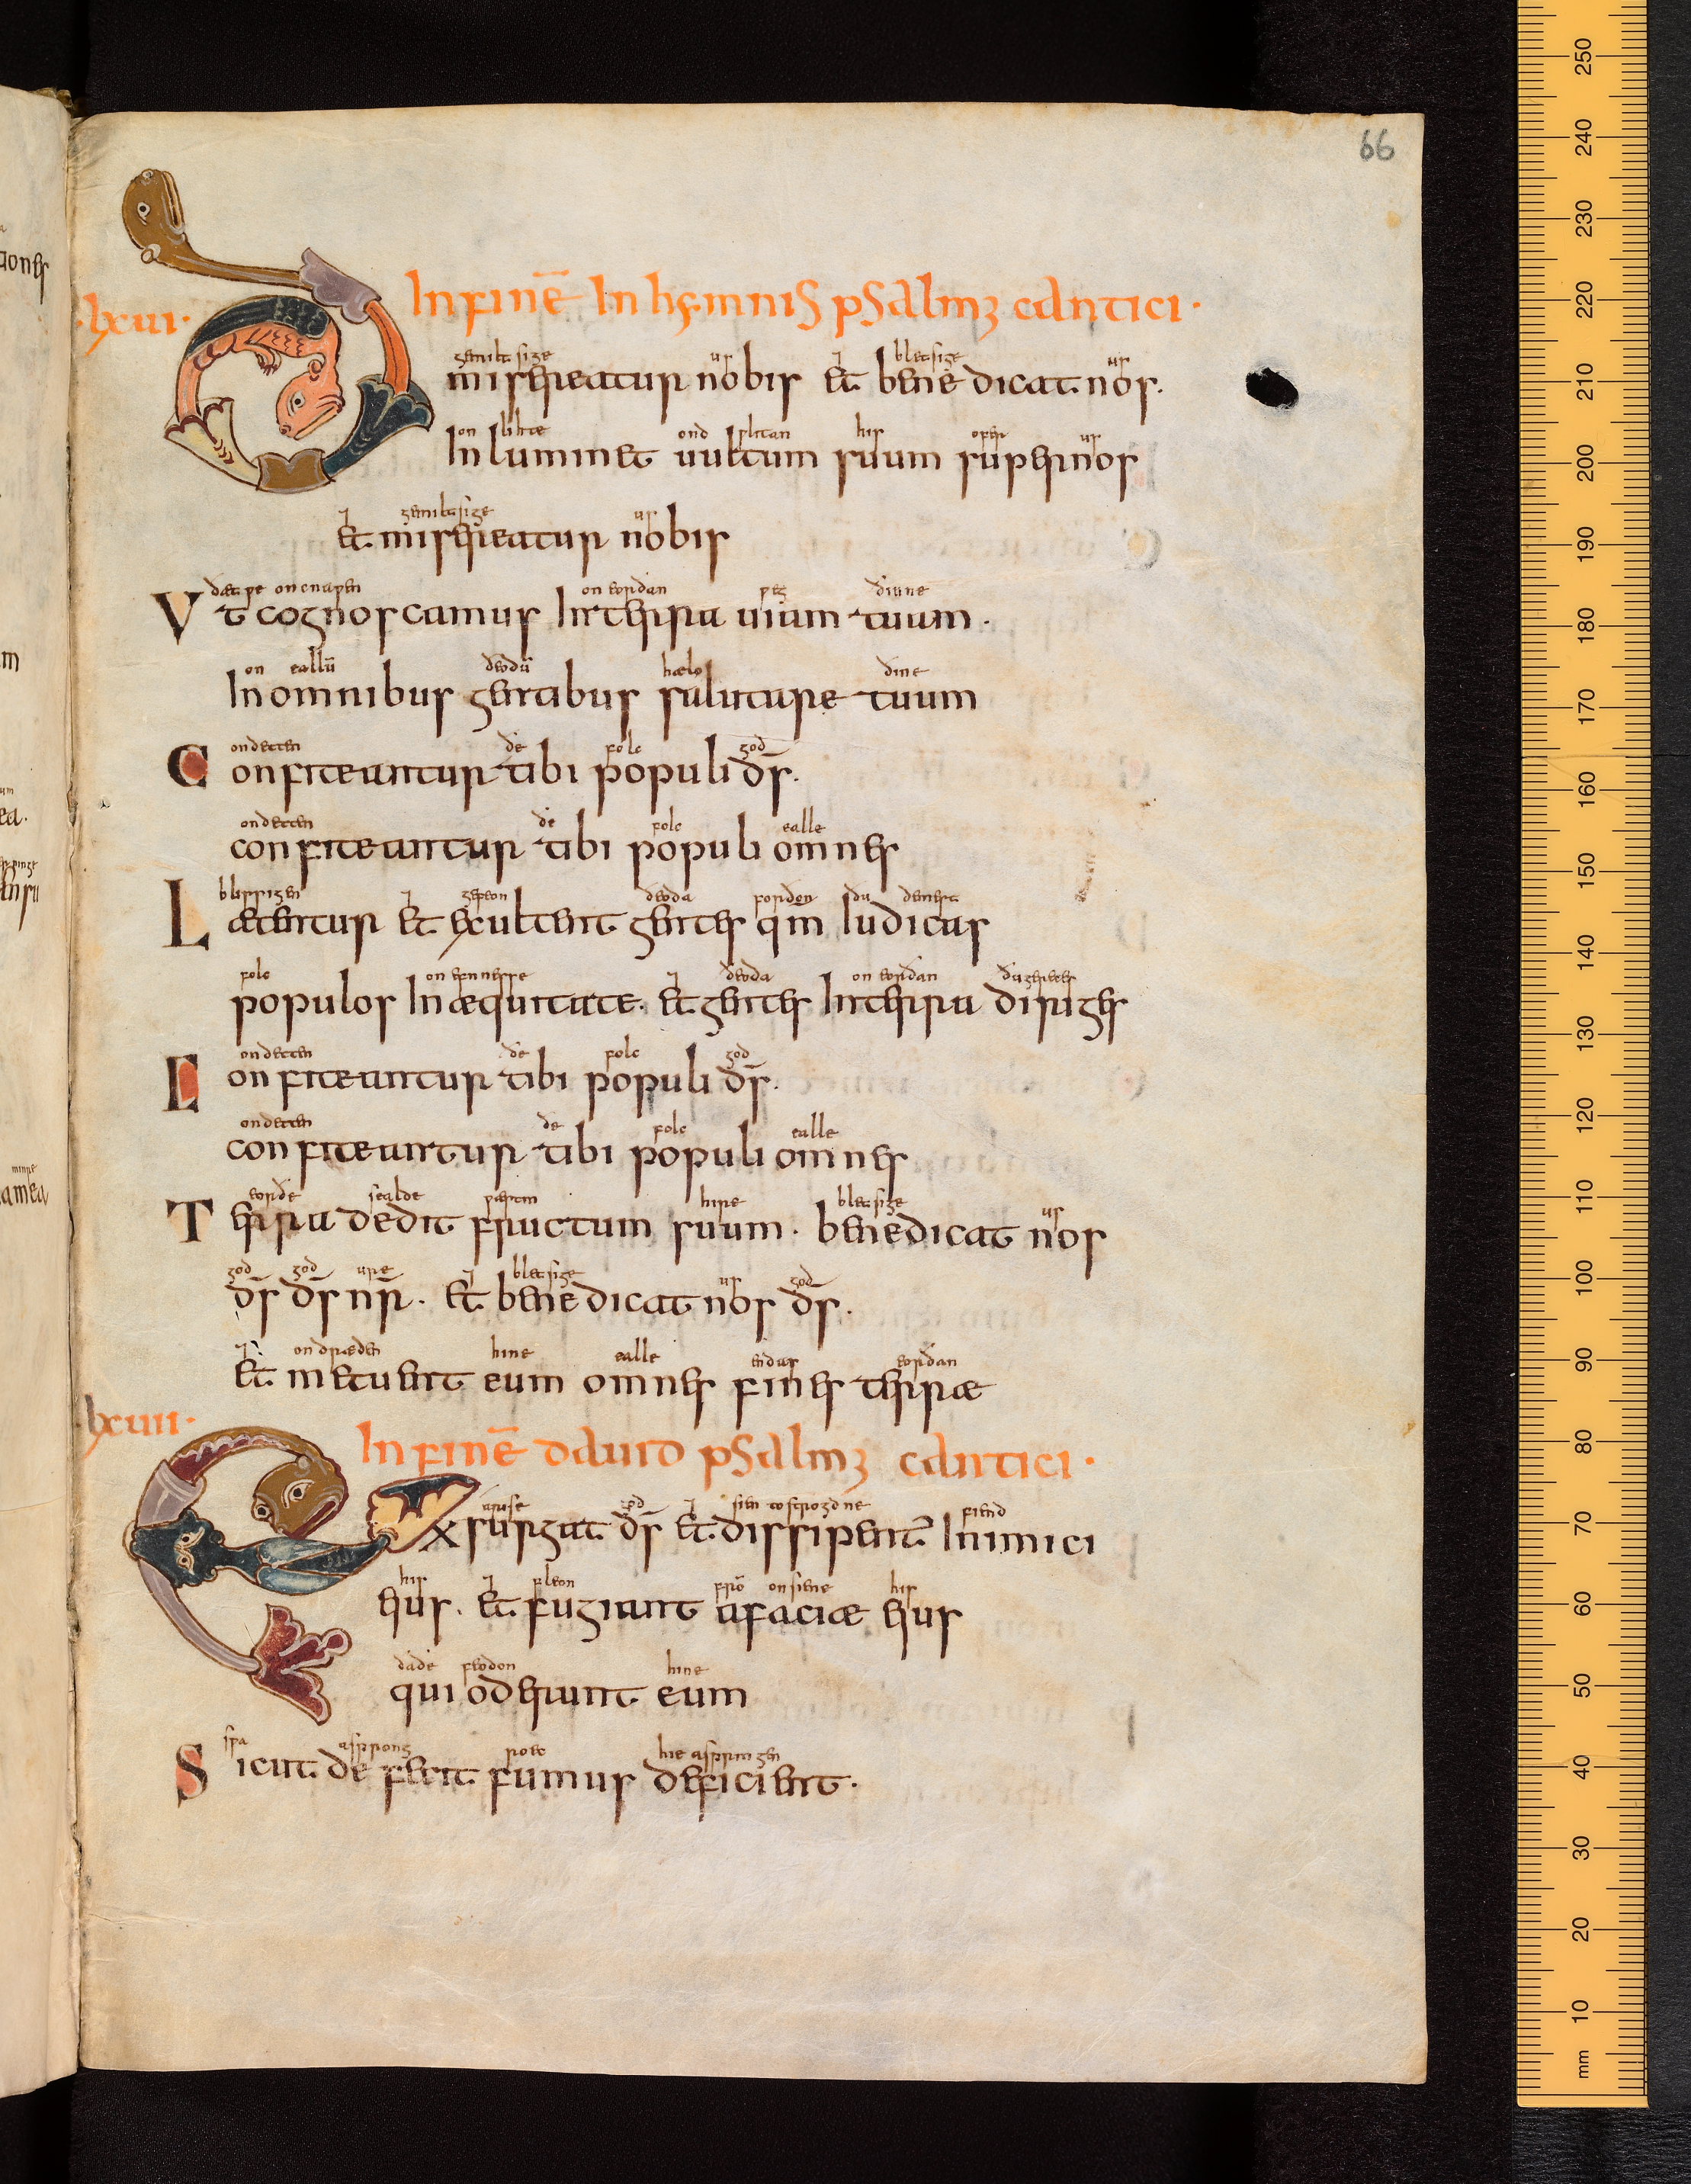 66
·lxui·
In finē In hymnis psalmꝫ cantici·
gemiltsige us ⁊ bletsige us
misereatur nobis et benedicat nos.
on lihte ond ƿlitan his ofer us
Inluminet uultum suum super nos
⁊ gemiltsige us
et misereatur nobis
ðæt ƿe oncnaƿen on eorðan ƿeg
Ut cognoscamus In terra uiam tuum·
on eallū ðeodū hælo ðine
In omnibus gentibus salutare tuum
ondetten ðe folc god
Confiteantur tibi populi d̄s.
ondetten ðe folc ealle
confiteantur tibi populi omnes
blissigen ⁊ gefeon ðeoda forðon ðu demest
Lætentur et exultent gentes qm Iudicas
folc on efnnesse ⁊ ðeoda on eorðan
populos In æquitate. et gentes In terra diriges
ondetten ðe folc god
Confiteantur tibi populi d̄s.
ondetten ðe folc ealle
confiteantur tibi populi omnes
eorðe sealde ƿæstm hire bletsige us
Terra dedit fructum suum· benedicat nos
god god ure ⁊ bletsige us god
d̄s d̄s nr̄· et benedicat nos d̄s.
⁊ ondræden hine ealle endas eorðan
et metuent eum omnes fines terræ
·lxuii·
In finē dauid psalmꝫ cantici·
arise god ⁊ sien tostrogdne fiend
Exsurgat d̄s et dissipent᷑ Inimici
his ⁊ fleon frō onsiene his
eius. et fugiant a faciæ eius
ðaðe feodon hine
qui oderunt eum
sƿa asprong roec hie aspringen
Sicut defecit fumus deficient·
250
240
230
220
210
200
190
180
170
160
150
140
130
120
110
100
90
80
70
60
50
40
30
20
10
mm